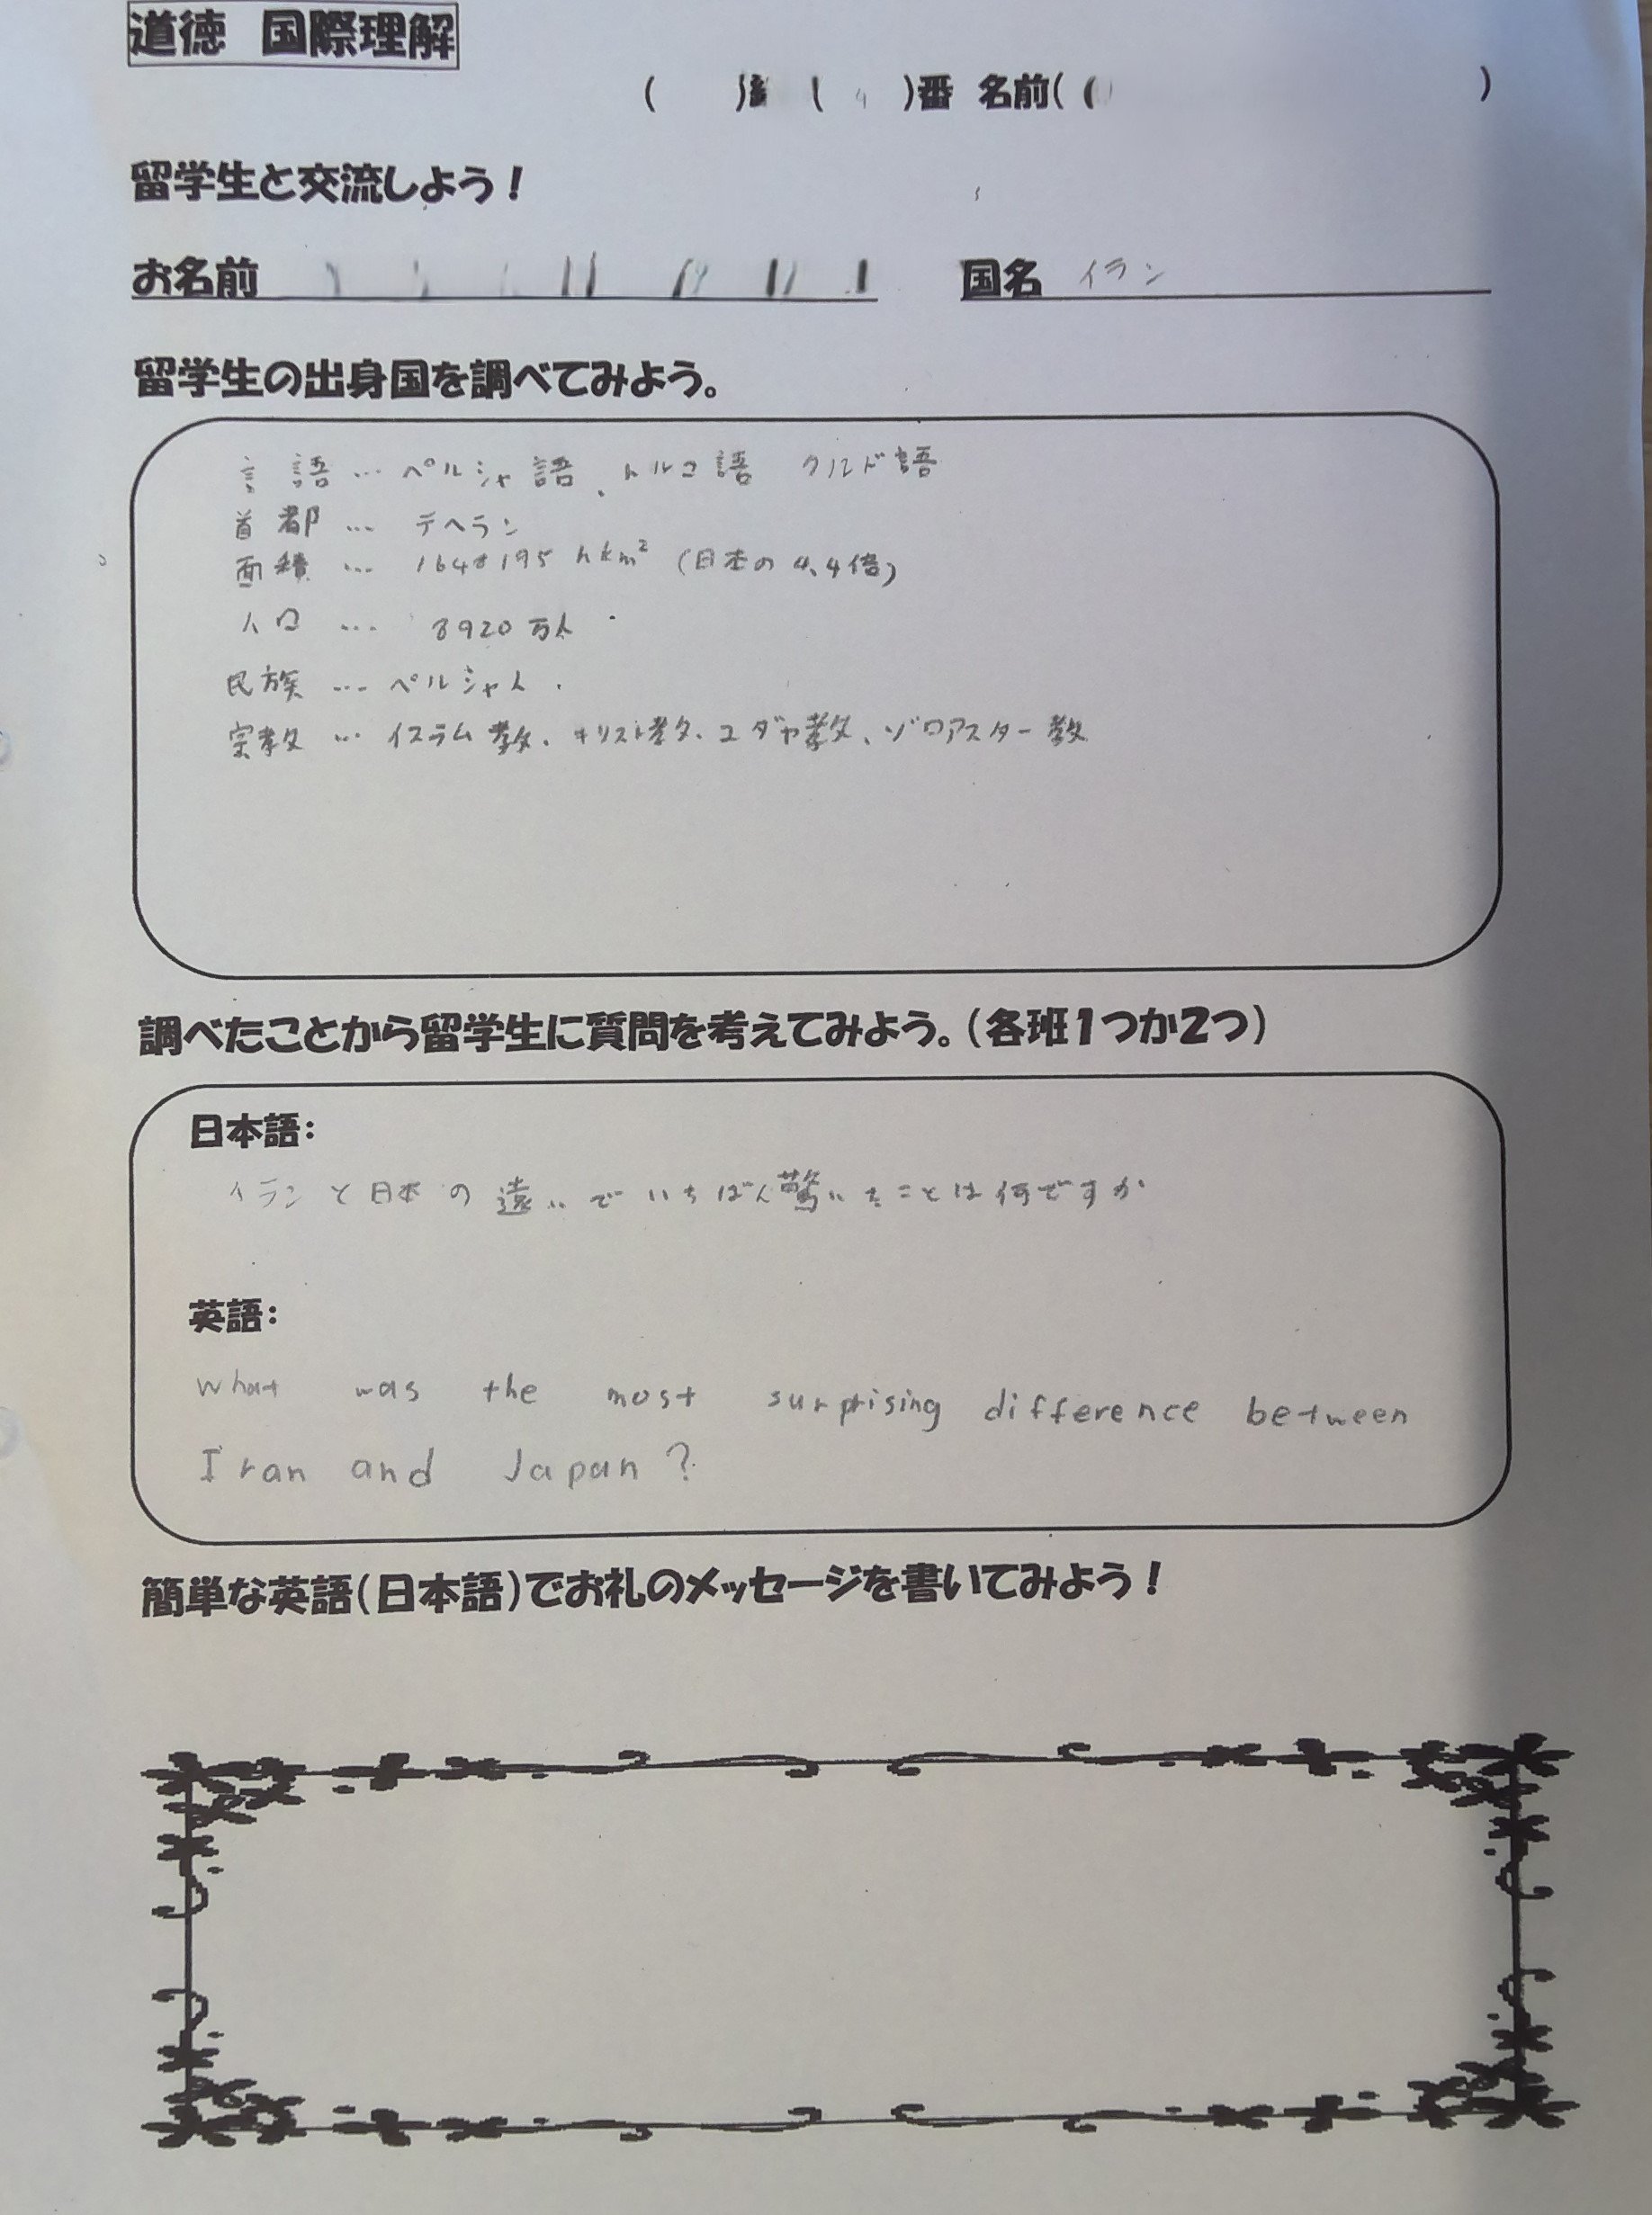 道徳 国際理解
( )組 ( )番 名前( )
留学生と交流しよう！
お名前 国名 イラン
留学生の出身国を調べてみよう。
言語…ペルシャ語、トルコ語 クルド語
首都…テヘラン
面積… km² (日本の4.4倍)
人口…8920万人
民族…ペルシャ人.
宗教…イスラム教、キリスト教、ユダヤ教、ゾロアスター教
調べたことから留学生に質問を考えてみよう。(各班1つか2つ)
日本語:
イランと日本の違いでいちばん驚いたことは何ですか
英語:
What was the most surprising difference between
Iran and Japan?
簡単な英語(日本語)でお礼のメッセージを書いてみよう！